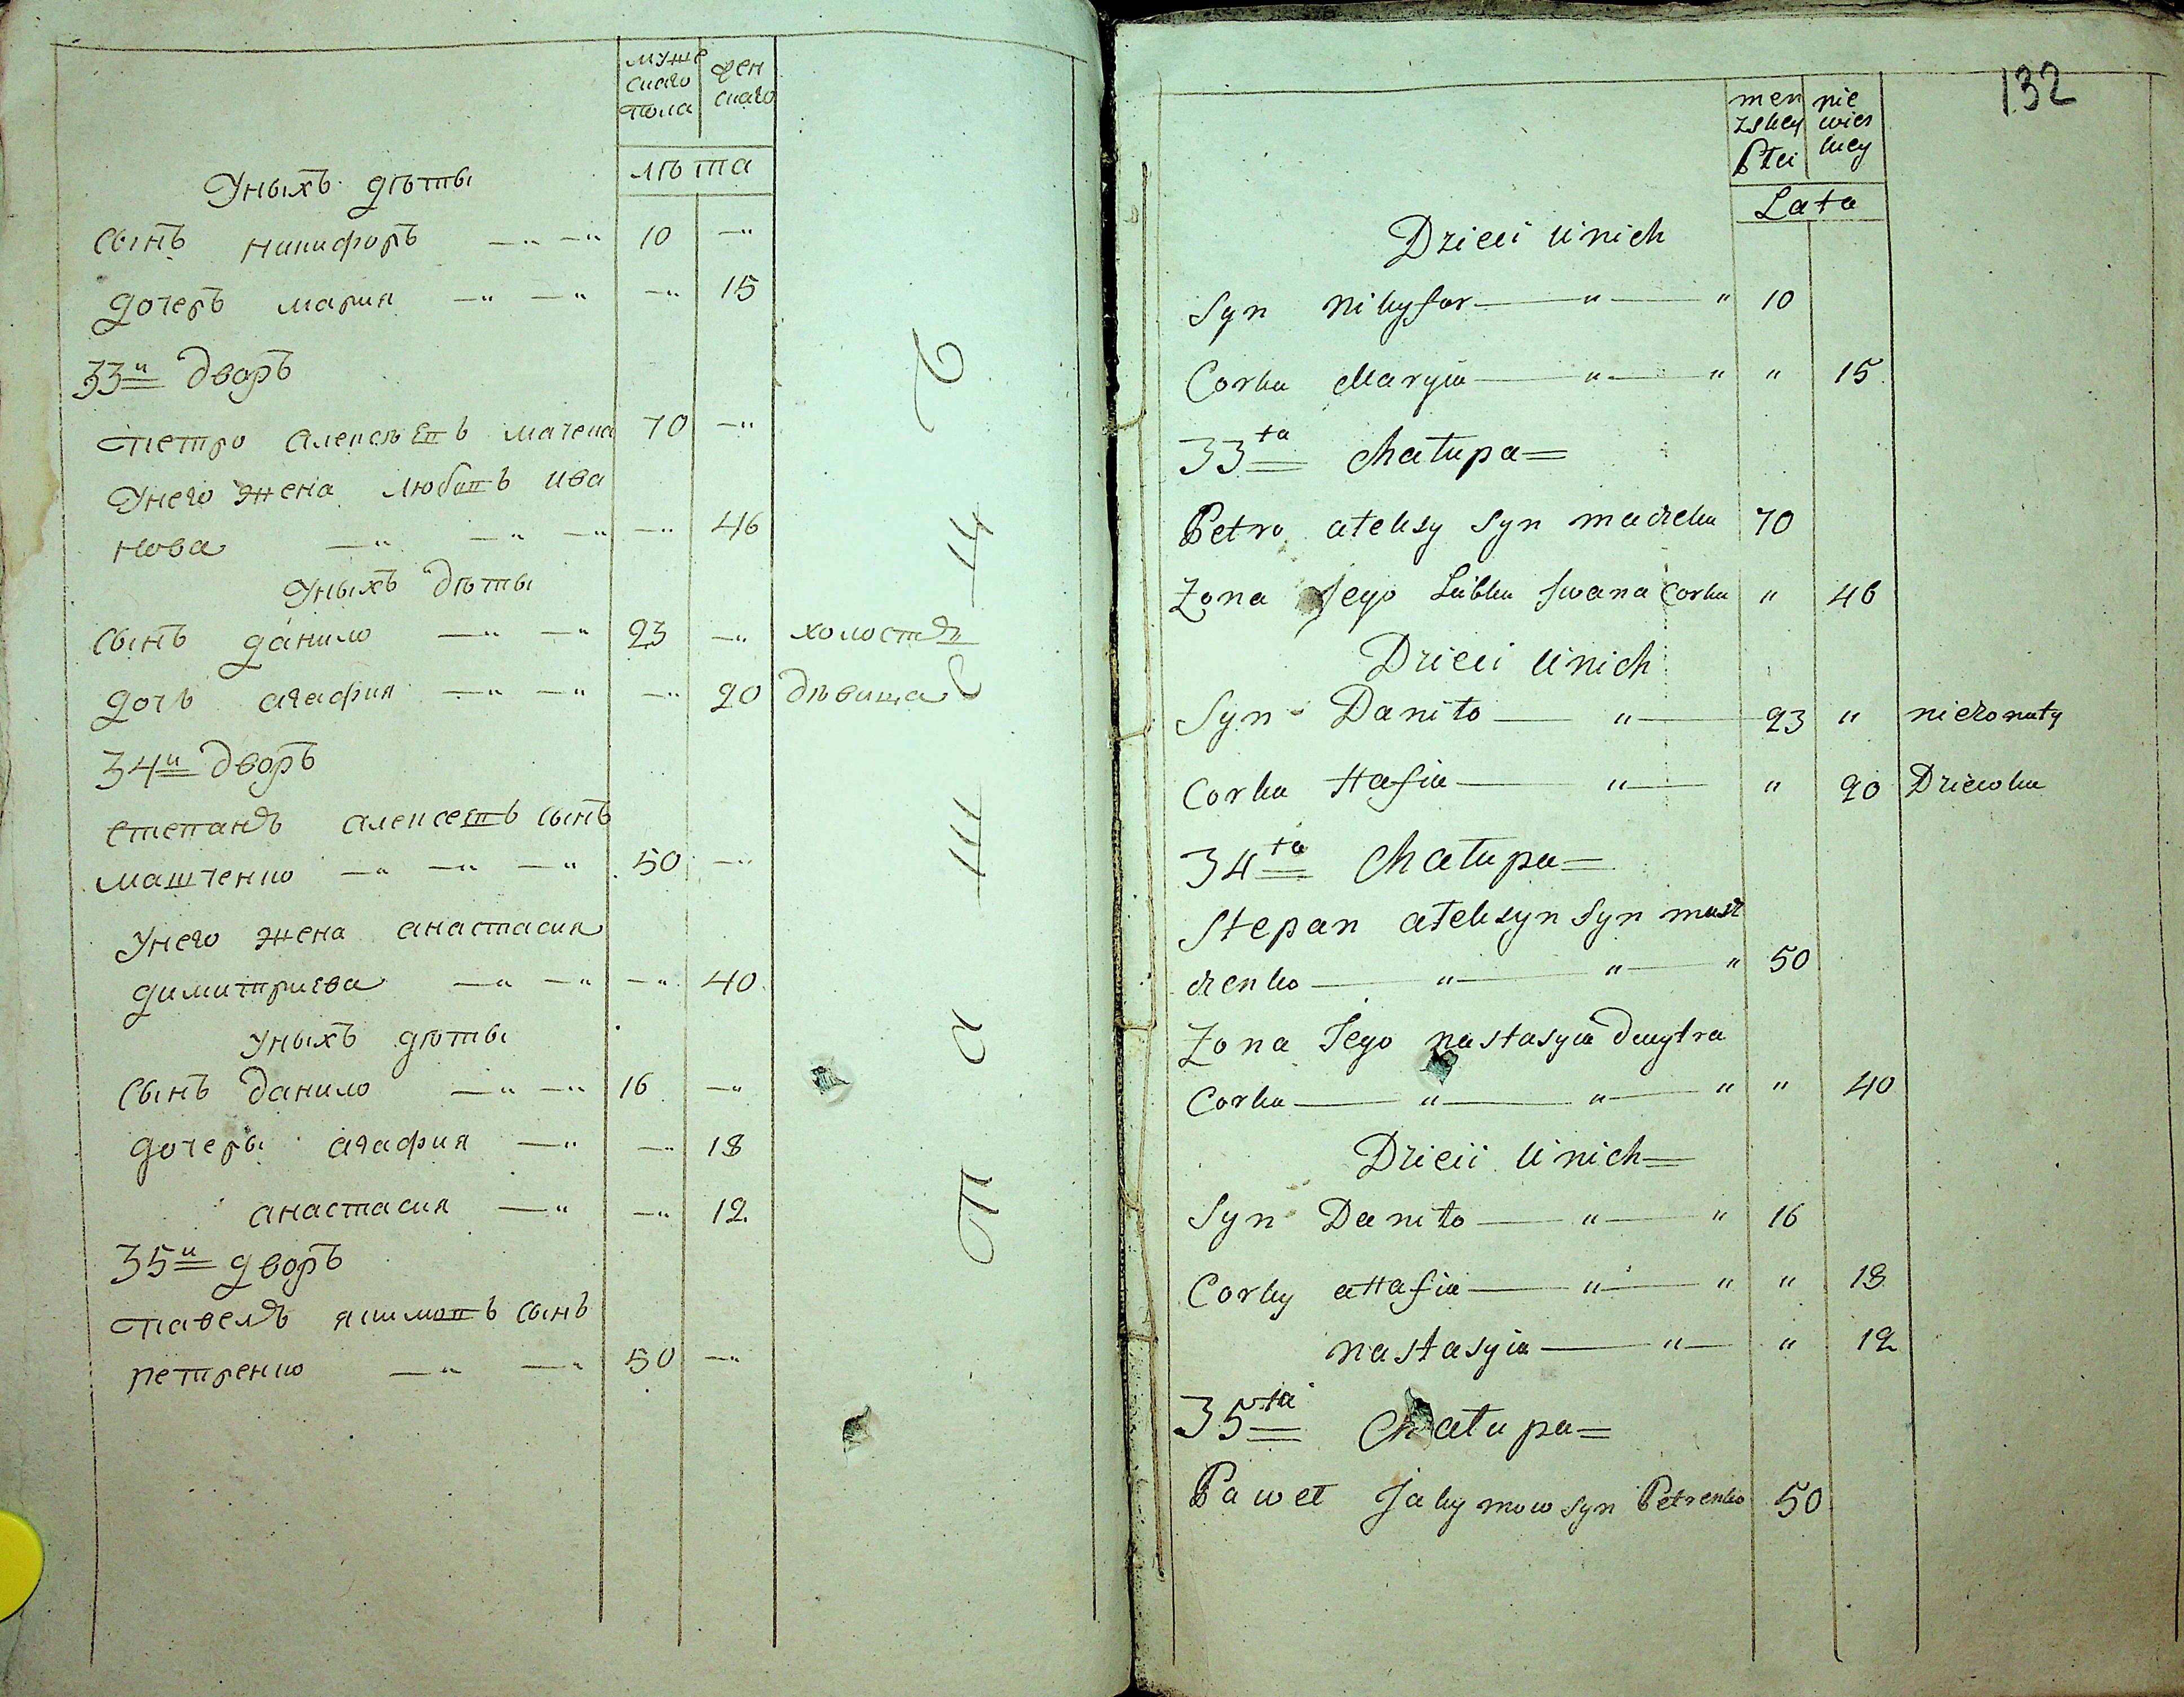 муже
скаго
пола
жен
скаго
лѣта
Уныхъ дѣты
сынъ никифоръ —„ —„ 10 —„
дочеръ мария —„ —„ —„ 15
33й дворъ
петро алексѣевъ мачека 70 —„
Унего жена любовъ ива
нова —„ —„ —„ —„ 46
Уныхъ дѣты
сынъ данило —„ —„ 23 —„ холостъ
дочъ агафия —„ —„ —„ 20 дѣвица
34й дворъ
степанъ алексеевъ сынъ
машченко —„ —„ —„ 50 —„
Унего жена анастасия
димитриева —„ —„ —„ 40
Уныхъ дѣты
сынъ данило —„ —„ 16 —„
дочеры агафия —„ —„ 18
анастасия —„ —„ 12
35й дворъ
павелъ якимовъ сынъ
петренко —„ —„ 50 —„
132
men
zskey
Płci
nie
wies
key
Lata
Dzieci unich
Syn Nikyfor — „ — „ 10
Corka Maryia — „ — „ „ 15
33ta Chałupa =
Petro ałeksy syn maczeka 70
Zona Jego Lubka Iwana Corka „ 46
Dzieci unich
Syn Daniło — „ — 23 „ niezonaty
Corka Hafia — „ — „ 20 Dziewka
34ta Chałupa =
Stepan ałeksyn syn masz
czenko — „ — „ — „ 50
Zona Jego nastasyia dmytra
Corka — „ — „ — „ „ 40
Dzieci unich =
Syn Daniło — „ — „ 16
Corky aHafia — „ — „ „ 18
nastasyia — „ — „ 12
35ta Chałupa =
Paweł Jakymow syn Petrenko 50